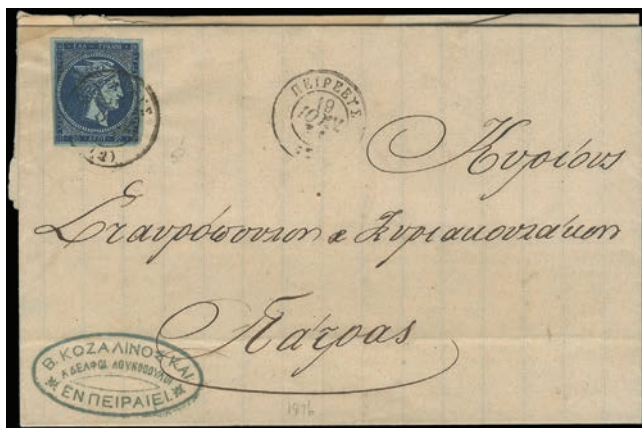 ΠΕΙΡΕΕΥΣ
19
(2)
Κυρίους
Σταυρόπουλον & Κυριακουλάκην
Πάτρας
Β. ΚΟΖΑΛΙΝΟΣ ΚΑΙ
ΑΔΕΛΦΟΙ
ΕΝ ΠΕΙΡΑΙΕΙ.
1876